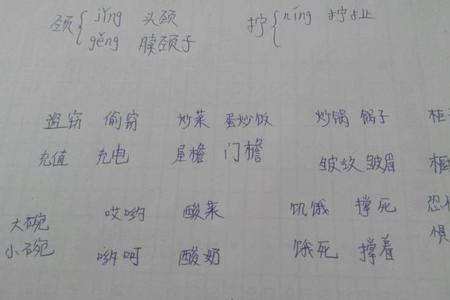 颈 { jǐng 头颈 拧 { níng 拧
gěng 脖颈子
盗窃 偷窃 炒菜 蛋炒饭 炒锅 锅子 柜
充值 充电 屋檐 门檐 皱纹 皱眉 柜
大碗 哎哟 酸菜 饥饿 撑死 恐
小碗 哟呵 酸奶 饿死 撑着 惧